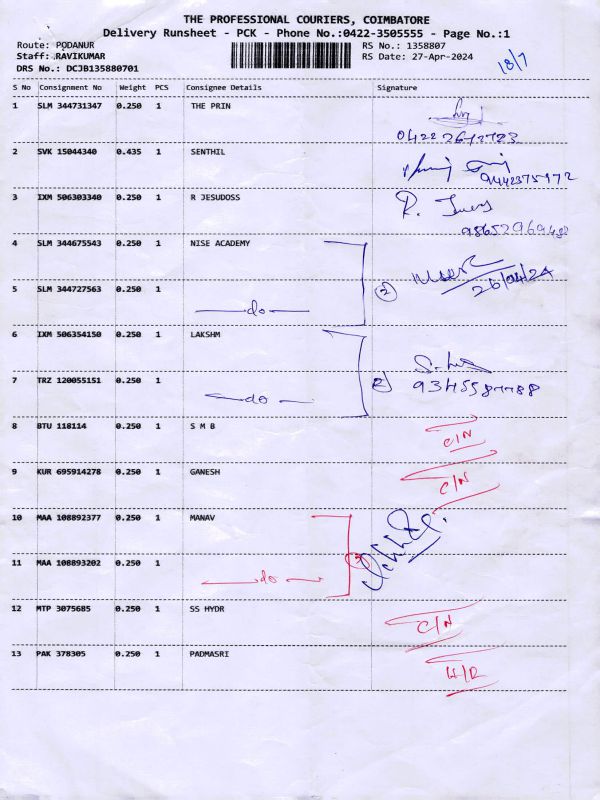 THE PROFESSIONAL COURIERS, COIMBATORE
Delivery Runsheet - PCK - Phone No.:0422-3505555 - Page No.:1
Route: PODANUR
RS No.: 1358807
Staff: RAVIKUMAR
RS Date: 27-Apr-2024
DRS No.: DCJB135880701
18/7
S No Consignment No Weight PCS Consignee Details Signature
1 SLM 344731347 0.250 1 THE PRIN
2 SVK 15044340 0.435 1 SENTHIL
3 IXM 506303340 0.250 1 R JESUDOSS
4 SLM 344675543 0.250 1 NISE ACADEMY
26/04/24
5 SLM 344727563 0.250 1 do 2
6 IXM 506354150 0.250 1 LAKSHM
7 TRZ 120055151 0.250 1 do 2
8 BTU 118114 0.250 1 S M B C/N
9 KUR 695914278 0.250 1 GANESH C/N
10 MAA 108892377 0.250 1 MANAV
11 MAA 108893202 0.250 1 do
12 MTP 3075685 0.250 1 SS HYDR C/N
13 PAK 378305 0.250 1 PADMASRI